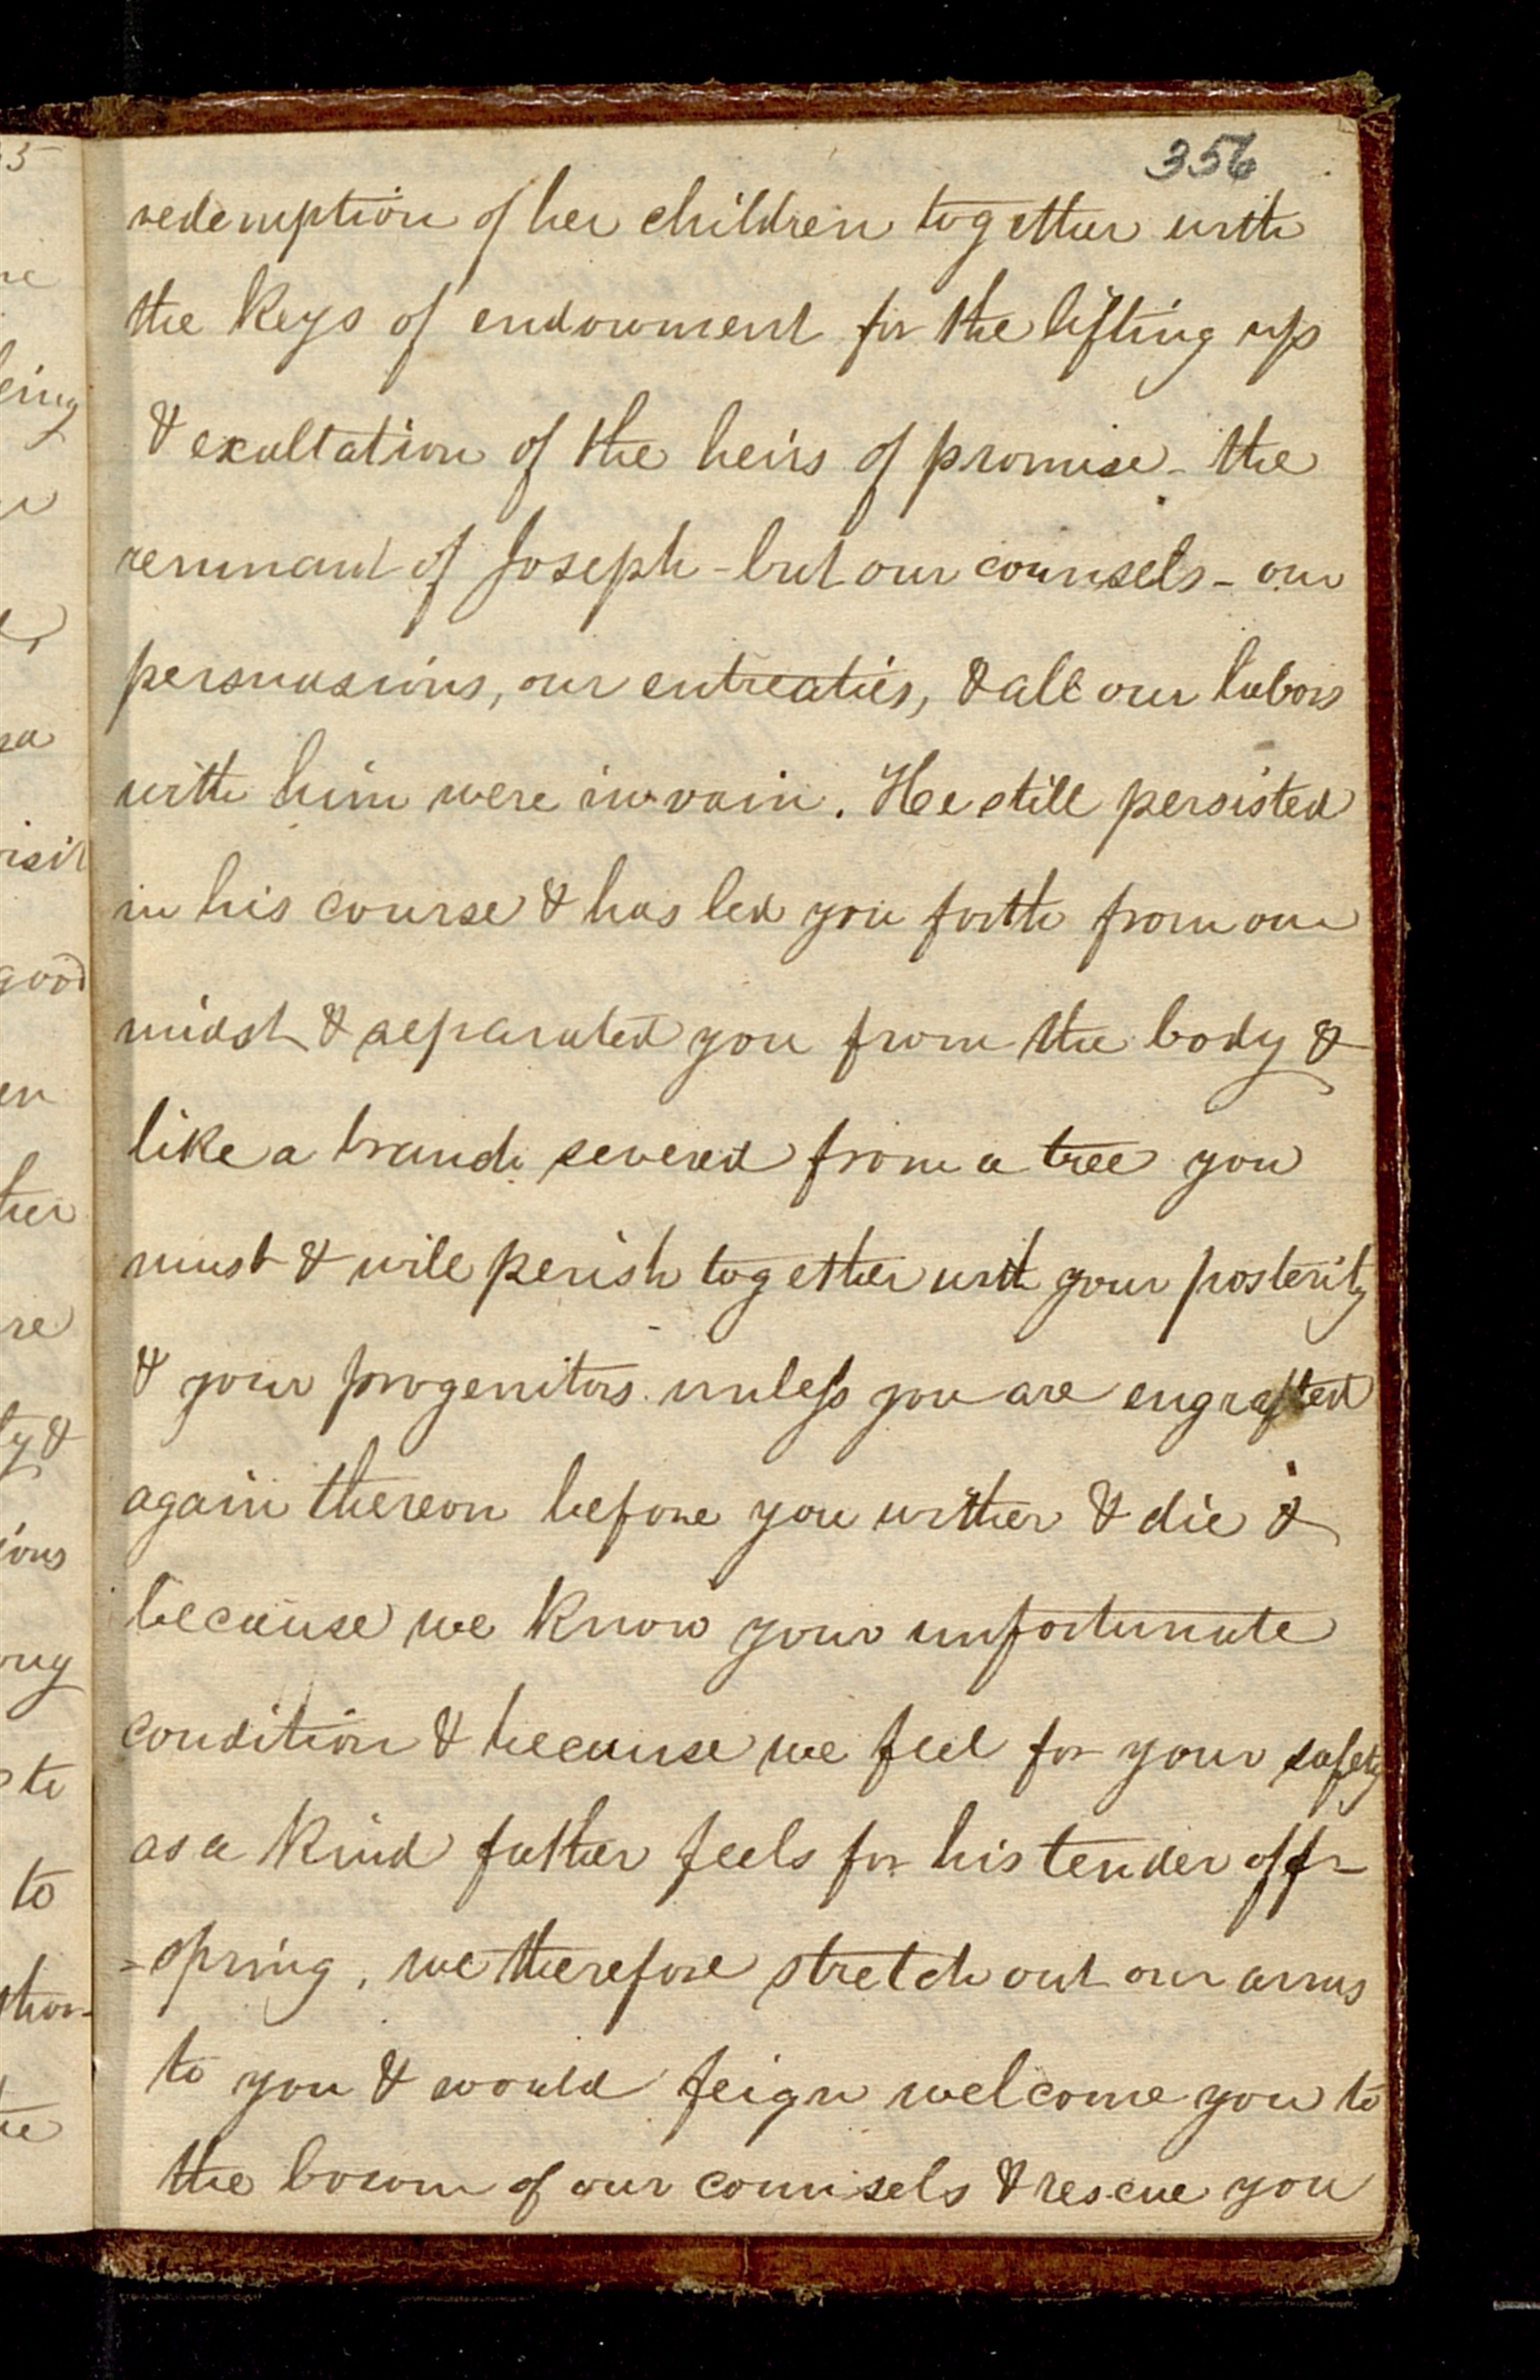 356
redemption of her children together with
the Keys of endowment for the lifting up
& exaltation of the heirs of promise - the
remnant of Joseph - but our counsels - our
persuasions, our entreaties, & all our labors
with him were in vain. He still persisted
in his course & has led you forth from our
midst & separated you from the body &
like a branch severed from a tree you
must & will perish together with your posterity
& your progenitors unless you are engrafted
again thereon before you wither & die &
because we Know your unfortunate
condition & because we feel for your safety
as a Kind father feels for his tender off-
-spring, we therefore stretch out our arms
to you & would feign welcome you to
the bosom of our counsels & rescue you
35
eing
isit
good
en
her
re
ty &
ious
to
to